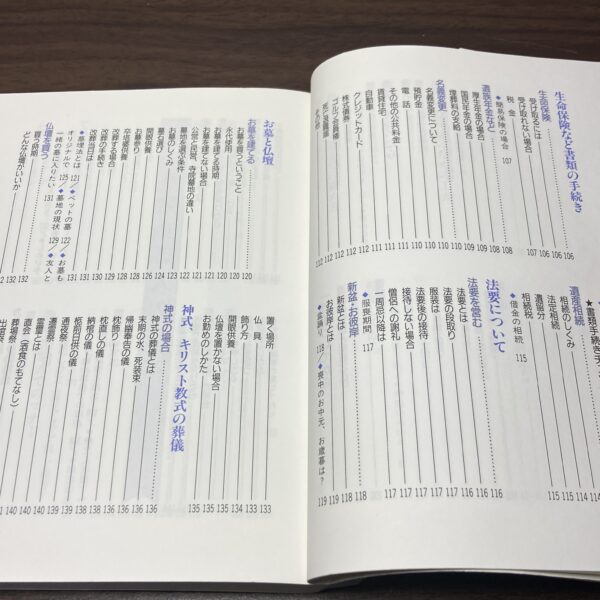 生命保険など書類の手続き
生命保険 106
受け取るには 106
受け取れない場合 107
税金
◆簡易保険の場合 107
遺族年金など 108
厚生年金の場合 108
国民年金の場合 109
埋葬料の支給 110
名義変更
名義変更について 110
預貯金 110
電話 110
その他の公共料金 111
賃貸住宅 111
自動車 111
クレジットカード 112
株式債券 112
ゴルフ会員権 112
★書類手続き
遺産相続 114
相続のしくみ 114
法定相続 115
遺留分 115
相続税
◆借金の相続 115
法要について
法要を営む 116
法要とは 116
法要の段取り 117
服装は 117
法要後の接待 117
接待しない場合 117
僧侶への謝礼 117
一周忌以降は 117
◆服喪期間 117
新盆・お彼岸 118
新盆とは 118
お彼岸とは 119
◆盆踊り 118/◆喪中のお中元、お歳暮は? 119
お墓と仏壇
お墓を建てる 120
お墓を買うということ 120
永代使用
お墓を建てる時期
お墓を建てない場合
公営と民営、寺院墓地の違い
墓地を選ぶ条件
お墓のしくみ 123
墓石選び 124
開眼供養
お墓参り
卒塔婆供養
改葬する場合
改葬の手続き
改葬当日は 131
◆墓埋法とは 121/◆ペットの墓 122/◆お墓も
オリジナルで 125/◆墓地の現状 129/◆友人と
一緒の墓に入りたい 131
仏壇を買う 132
買う時期 132
どんな仏壇がいいか 132
置く場所 133
仏具 133
飾り方 134
開眼供養 134
仏壇を置かない場合 135
お勤めのしかた 135
神式、キリスト教式の葬儀
神式の場合 136
神式の葬儀とは 136
末期の水、死装束 136
帰幽奉告の儀 136
枕飾り 136
枕直しの儀 138
納棺の儀 138
柩前日供の儀 138
通夜祭 139
遷霊祭 139
霊璽とは 139
直会(酒食のもてなし) 140
葬場祭 140
出棺祭